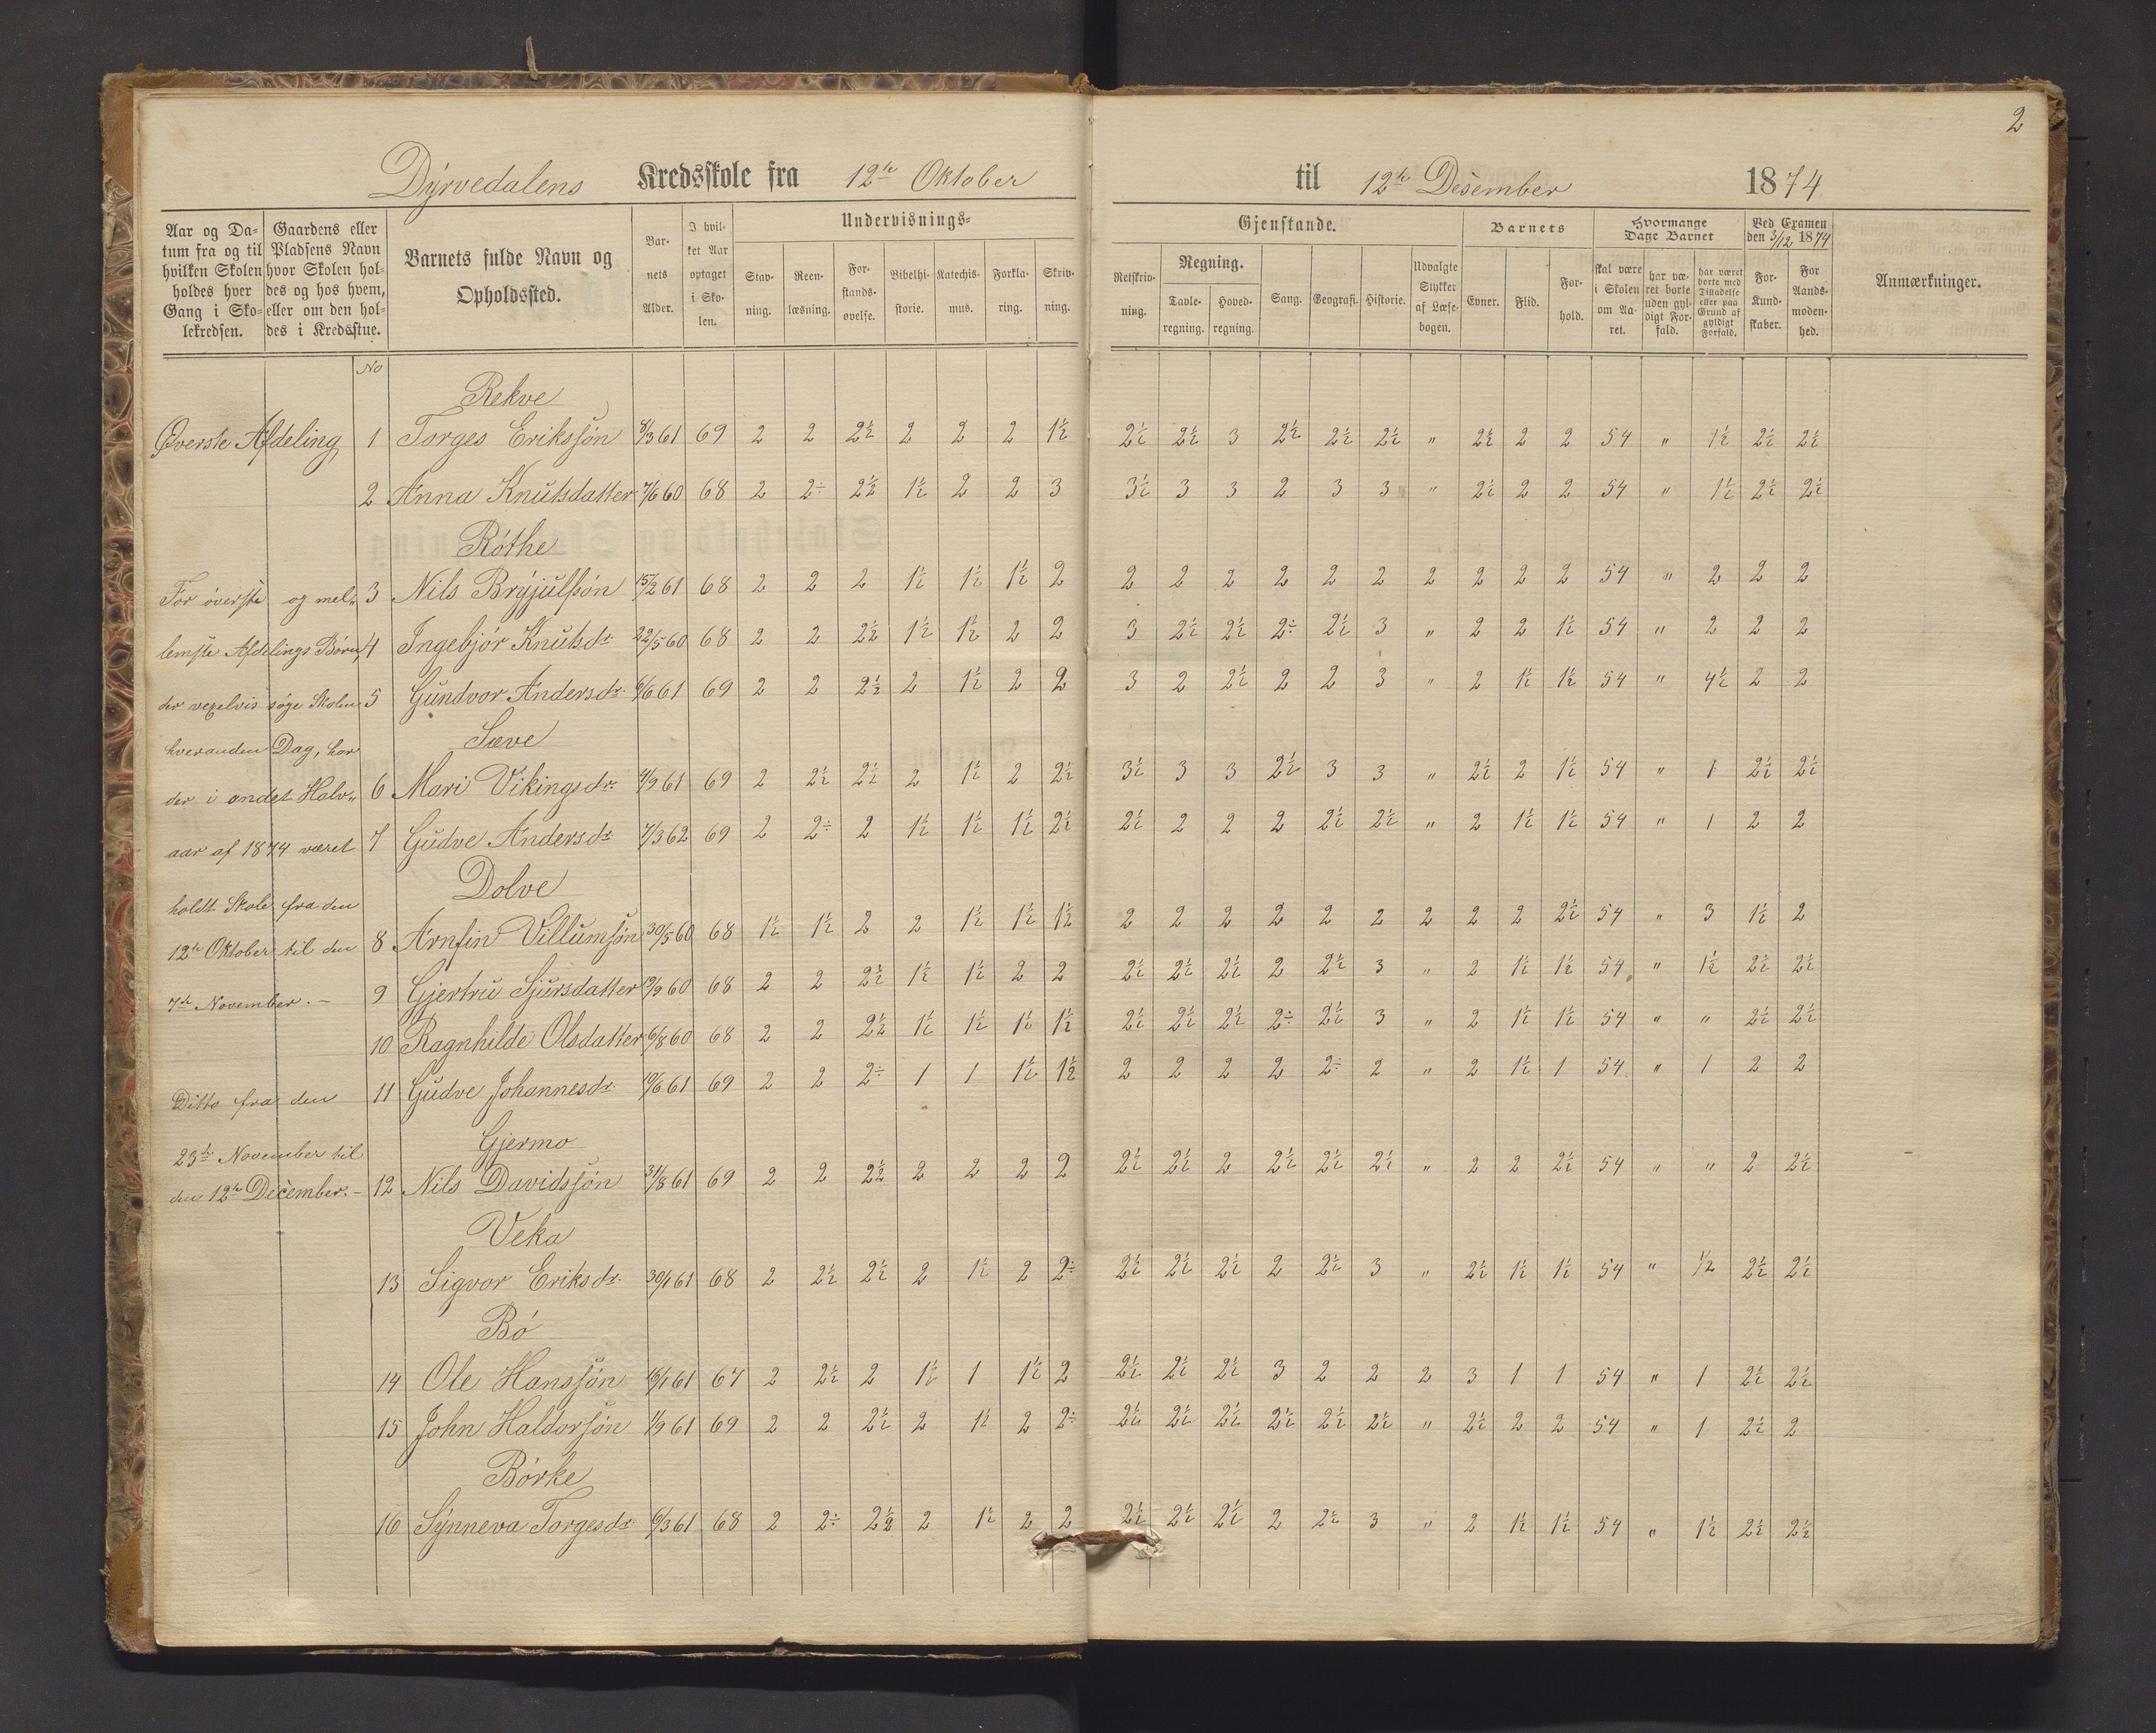 2
Dyrvedalens Kredsskole fra 12te Oktober til 12te Desember 1874
Aar og Datum fra og til hvilken Skolen holdes hver Gang i Skolekredsen.
Gaardens eller Pladsens Navn hvor Skolen holdes og hos hvem, eller om den holdes i Kredsstue.
Barnets fulde Navn og Opholdssted.
Barnets Alder.
I hvilket Aar optaget i Skolen.
Undervisnings-
Stavning.
Reenlæsning.
Forstandsøvelse.
Bibelhistorie.
Katechismus.
Forklaring.
Skrivning.
Gjenstande.
Retskrivning.
Regning.
Tavleregning.
Hovedregning.
Sang.
Geografi.
Historie.
Udvalgte Stykker af Læsebogen.
Barnets
Evner.
Flid.
Forhold.
Hvormange Dage Barnet
skal være i Skolen om Aaret.
har været borte uden gyldigt Forfald.
har været borte med Tilladelse eller paa Grund af gyldigt Forfald.
Ved Examen den 3/12 1874
For Kundskaber.
For Aandsmodenhed.
Anmærkninger.
No
Rekve
Øverste Afdeling 1 Torges Eriksøn 8/3 61 69 2 2 2½ 2 2 2 1½ 2½ 2½ 3 2½ 2½ 2½ " 2½ 2 2 54 " 1½ 2½ 2½
2 Anna Knutsdatter 7/6 60 68 2 2÷ 2½ 1½ 2 2 3 3½ 3 3 2 3 3 " 2½ 2 2 54 " 1½ 2½ 2½
Röthe
For överste og mel„ 3 Nils Bryjulsön 15/2 61 68 2 2 2 1½ 1½ 1½ 2 2 2 2 2 2 2 2 2 2 2 54 " 2 2 2
lemste Afdelings Börn, 4 Ingebjör Knutsdr. 22/5 60 68 2 2 2½ 1½ 1½ 2 2 3 2½ 2½ 2÷ 2½ 3 " 2 2 1½ 54 " 2 2 2
der vexelvis söge Skolen 5 Gundvor Andersdr. 6/6 61 69 2 2 2½ 2 1½ 2 2 3 2 2½ 2 2 3 " 2 1½ 1½ 54 " 4½ 2 2
hveranden Dag, har
Sæve
der i andet Halv„ 6 Mari Vikingsdr. 4/9 61 69 2 2½ 2½ 2 1½ 2 2½ 3½ 3 3 2½ 3 3 " 2½ 2 1½ 54 " 1 2½ 2½
aar af 1874 været 7 Gudve Andersdr. 7/3 62 69 2 2÷ 2 1½ 1½ 1½ 2½ 2½ 2 2 2 2½ 2½ " 2 1½ 1½ 54 " 1 2 2
Dolve
holdt Skole fra den
12te Oktober til den 8 Arnfin Villumsön 30/5 60 68 1½ 1½ 2 2 1½ 1½ 1½ 2 2 2 2 2 2 2 2 2 2½ 54 " 3 1½ 2
7de November. – 9 Gjertru Sjursdatter 19/9 60 68 2 2 2½ 1½ 1½ 2 2 2½ 2½ 2½ 2 2½ 3 " 2 1½ 1½ 54 " 1½ 2½ 2½
10 Ragnhilde Olsdatter 6/8 60 68 2 2 2½ 1½ 1½ 1½ 1½ 2½ 2½ 2½ 2÷ 2½ 3 " 2 1½ 1½ 54 " " 2½ 2½
Ditto fra den 11 Gudve Johannesdr. 19/6 61 69 2 2 2÷ 1 1 1½ 1½ 2 2 2 2 2÷ 2 " 2 1½ 1 54 " 1 2 2
Gjermo
23de November til
den 12te December. – 12 Nils Davidssön 31/8 61 69 2 2 2½ 2 2 2 2 2½ 2½ 2 2½ 2½ 2½ " 2 2 2½ 54 " " 2 2½
Veka
13 Sigvor Eriksdr. 30/1 61 68 2 2½ 2½ 2 1½ 2 2÷ 2½ 2½ 2½ 2 2½ 3 " 2½ 1½ 1½ 54 " ½ 2½ 2½
Bö
14 Ole Hanssön 16/1 61 67 2 2½ 2 1½ 1 1½ 2 2½ 2½ 2½ 3 2 2 2 3 1 1 54 " 1 2½ 2½
15 John Haldorsön 1/9 61 69 2 2 2½ 2 1½ 2 2÷ 2½ 2½ 2½ 2½ 2½ 2½ " 2½ 2 2 54 " 1 2½ 2
Börke
16 Synneva Torgesdr. 6/3 61 68 2 2÷ 2½ 2 1½ 2 2 2½ 2½ 2½ 2 2½ 3 " 2 1½ 1½ 54 " 1½ 2½ 2½